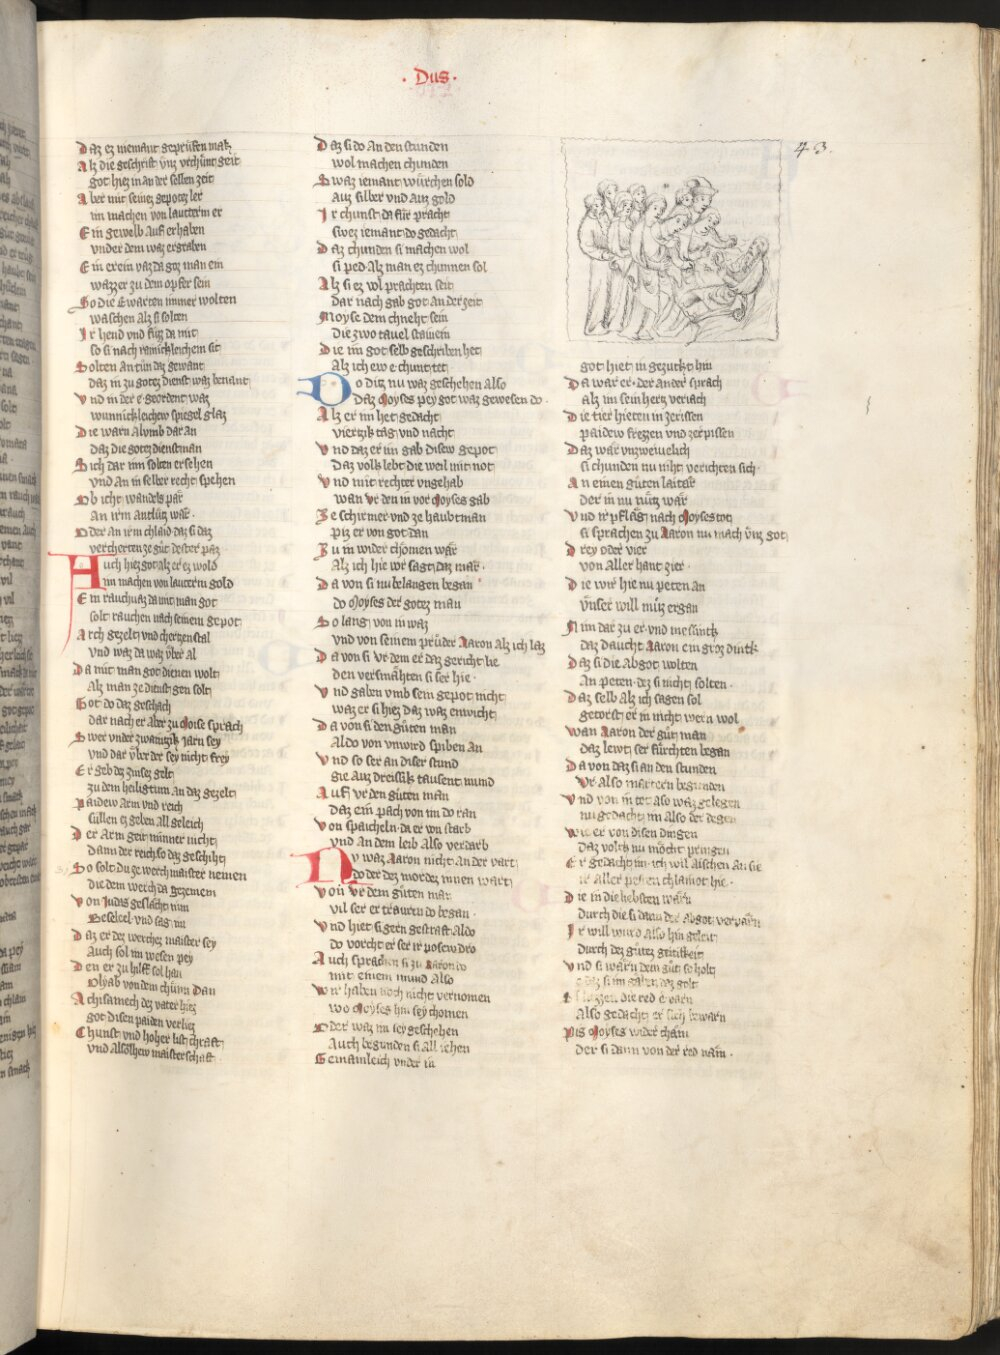 · Dus ·
43.
Daz ez niemant geprüfen mak
Alz die geschrift vnz verchünt geit
got hiez in an der selben zeit
Aber mit seinez gepotez ler
im machen von lautterm er
Ein gewelb Auf erhaben
vnder dem waz ergraben
Ein erein vaz da goz man ein
wazzer zu dem opfer sein
So die Ewarten immer wolten
waschen Alz si solten
Ir hend vnd füz da mit
so si nach rainickleichem sit
Solten An tün daz gewant
daz in zu gotez dienst waz benant
Vnd in der e geordent waz
wunnickleichew spiegel glaz
Die warn Alvmb dar an
daz die gotez dienstman
Sich dar inn solten ersehen
vnd An in selber recht spehen
Ob icht wandels pär
An irm Antlütz wär ·
Oder An irm chlaid daz si daz
vercherten ze güt dester paz
Auch hiez got alz er ez wold
im machen von lauterm gold
Ein rauchuaz da mit man got
solt rauchen nach seinem gepot
Arch gezelt vnd cherzenstal
vnd waz da waz vber al
Da mit man got dienen wolt
Alz man ze dienst gen solt
Got do daz geschach
dar nach er Aber zu Moise sprach
Swer vnder zwaintzik iarn sey
vnd dar vber der sey nicht frey
Er geb dez zinsez gelt
zu dem heiligtum an daz gezelt
Paidew Arm vnd reich
süllen ez geben all geleich
Der Arm geit minner nicht
dann der reich so daz geschiht
So solt du ze werchmaister nemen
die dem werch da gezemem
Von Judas geslächt nim
Beseleel vnd sag im
Daz er dez werchez maister sey
Auch sol im wesen pey
Den er zu hilff sol han
Olyab von dem chünn Dan
Achisamech dez vater hiez
got disen paiden verliez
Chunst vnd hoher list chraft
vnd Alsölhew maisterschaft ·
Daz si do An den stunden
wol machen chunden
Swaz iemant würchen sold
Auz silber vnd Auz gold
Ir chunst da für pracht
swez iemant do gedacht
Daz chunden si machen wol
si ped Alz man ez chunnen sol
Alz si ez vol prachten seit
dar nach gab got An der zeit
Moyse dem chneht sein
die zwo tauel stainein
Die im got selb geschriben het
Alz ich ew e chunt tet
Do ditz nu waz geschehen Also
Daz Moyses pey got waz gewesen do ·
Alz er im het gedacht
viertzik täg vnd nacht
Vnd daz er im gab disew gepot
Daz volk lebt die weil mit not
Vnd mit rechter vngehab
wan Vr den in vor Moyses gab
Ze schirmer vnd ze haubtman
piz er von got dan
Zu in wider chömen wär
Alz ich hie vor sagt daz mär ·
Da von si nu belangen began
do Moyses der gotez man
So lang von in waz
vnd von seinem prüder Aaron Alz ich laz
Da von si Vr dem er daz gericht lie
den versmähten si ser hie ·
Vnd gaben vmb sein gepot nicht
waz er si hiez daz waz enwicht
Da von si den güten man
Aldo von vnwird spiben An
Vnd so ser an diser stund
Sie Auz dreissik tausent mund
Auf Vr den güten man
daz ein pach von im do ran
Von spaicheln da er von starb
vnd An dem leib Also verdarb
Nv waz Aaron nicht An der vart
do der dez mordez innen wart
Von Vr dem güten man
vil ser er trauren do began ·
Vnd hiet si gern gestraft Aldo
do vorcht er ser ir posew dro
Auch sprachen si zu Aaron do
mit einem mund Also
Wir haben noch nicht vernomen
wo Moyses hin sey chomen
Oder waz im sey geschehen
Auch begunden si All iehen
Gemainleich vnder in
got hiet in gezukt hin
Da war er · der ander sprach
alz im sein hertz veriach
Die tier hieten in zerissen
paidew frezzen vnd zerpissen
Daz wär vnzweiuelich
si chunden nu niht verichten sich ·
An einen güten laitär
der in nu nütz wär
Vnd ir pfläg nach Moyses tot
si sprachen zu Aaron nu mach vns got
Drey oder vier
von Aller hant zier ·
Die wir hie nu peten an
vnser will müz ergan
Nim dar zu er vnd messink
daz daucht Aaron ein groz dink
Daz si die Abgot wolten
An peten dez si nicht solten ·
Daz selb Alz ich sagen sol
getorst er in nicht wern wol
Wan Aaron der güt man
daz lewt ser fürchten began
Da von daz si an den stunden
Vr Also martern begunden
Vnd von in tot also waz gelegen
nu gedacht im Also der degen
Wie er von disen dingen
daz volk nu möcht pringen
Er gedacht im ich wil Aischen An sie
ir Aller pesten chlainot hie ·
Die in die liebsten wärn
durch die si dann der Abgot verpärn
Ir will wurd Also hin geleit
durch dez gütez geitikeit
Vnd si wärn dem güt so holt
e daz si im gäben daz golt
Si liezzen die red e varn
Also gedacht er sich bewarn
Pis Moyses wider cham
der si dann von der red nam ·